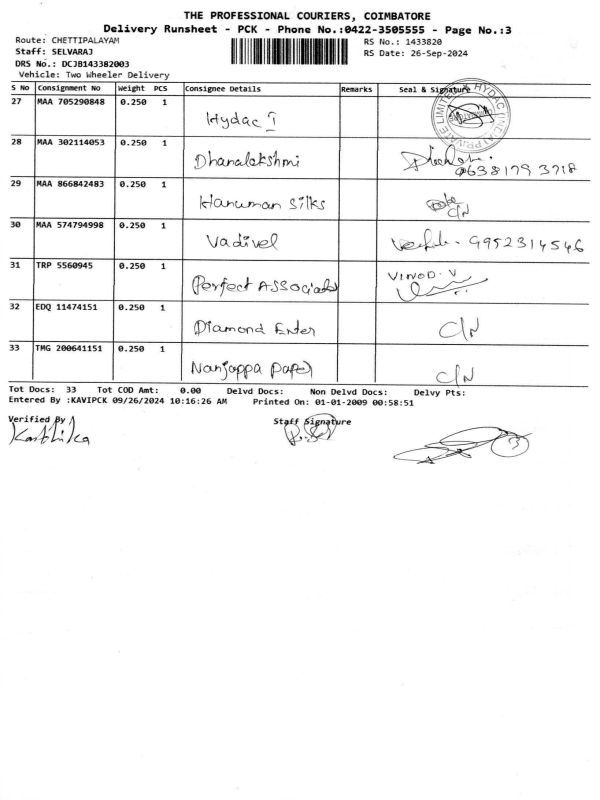 THE PROFESSIONAL COURIERS, COIMBATORE
Delivery Runsheet - PCK - Phone No.:0422-3505555 - Page No.:3
Route: CHETTIPALAYAM RS No.: 1433820
Staff: SELVARAJ RS Date: 26-Sep-2024
DRS No.: DCJB143382003
Vehicle: Two Wheeler Delivery
S No Consignment No Weight PCS Consignee Details Remarks Seal & Signature
27 MAA 705290848 0.250 1
Hydac I
28 MAA 302114053 0.250 1
Dhanalekshmi
9638179 3718
29 MAA 866842483 0.250 1
Hanuman Silks
C/N
30 MAA 574794998 0.250 1
Vadivel 9952314546
31 TRP 5560945 0.250 1
VINOD. V
Perfect Associats
32 EDQ 11474151 0.250 1
Diamond Enter C/N
33 TMG 200641151 0.250 1
Nanjappa Paper C/N
Tot Docs: 33 Tot COD Amt: 0.00 Delvd Docs: Non Delvd Docs: Delvy Pts:
Entered By :KAVIPCK 09/26/2024 10:16:26 AM Printed On: 01-01-2009 00:58:51
Verified By Staff Signature
Karthika
3